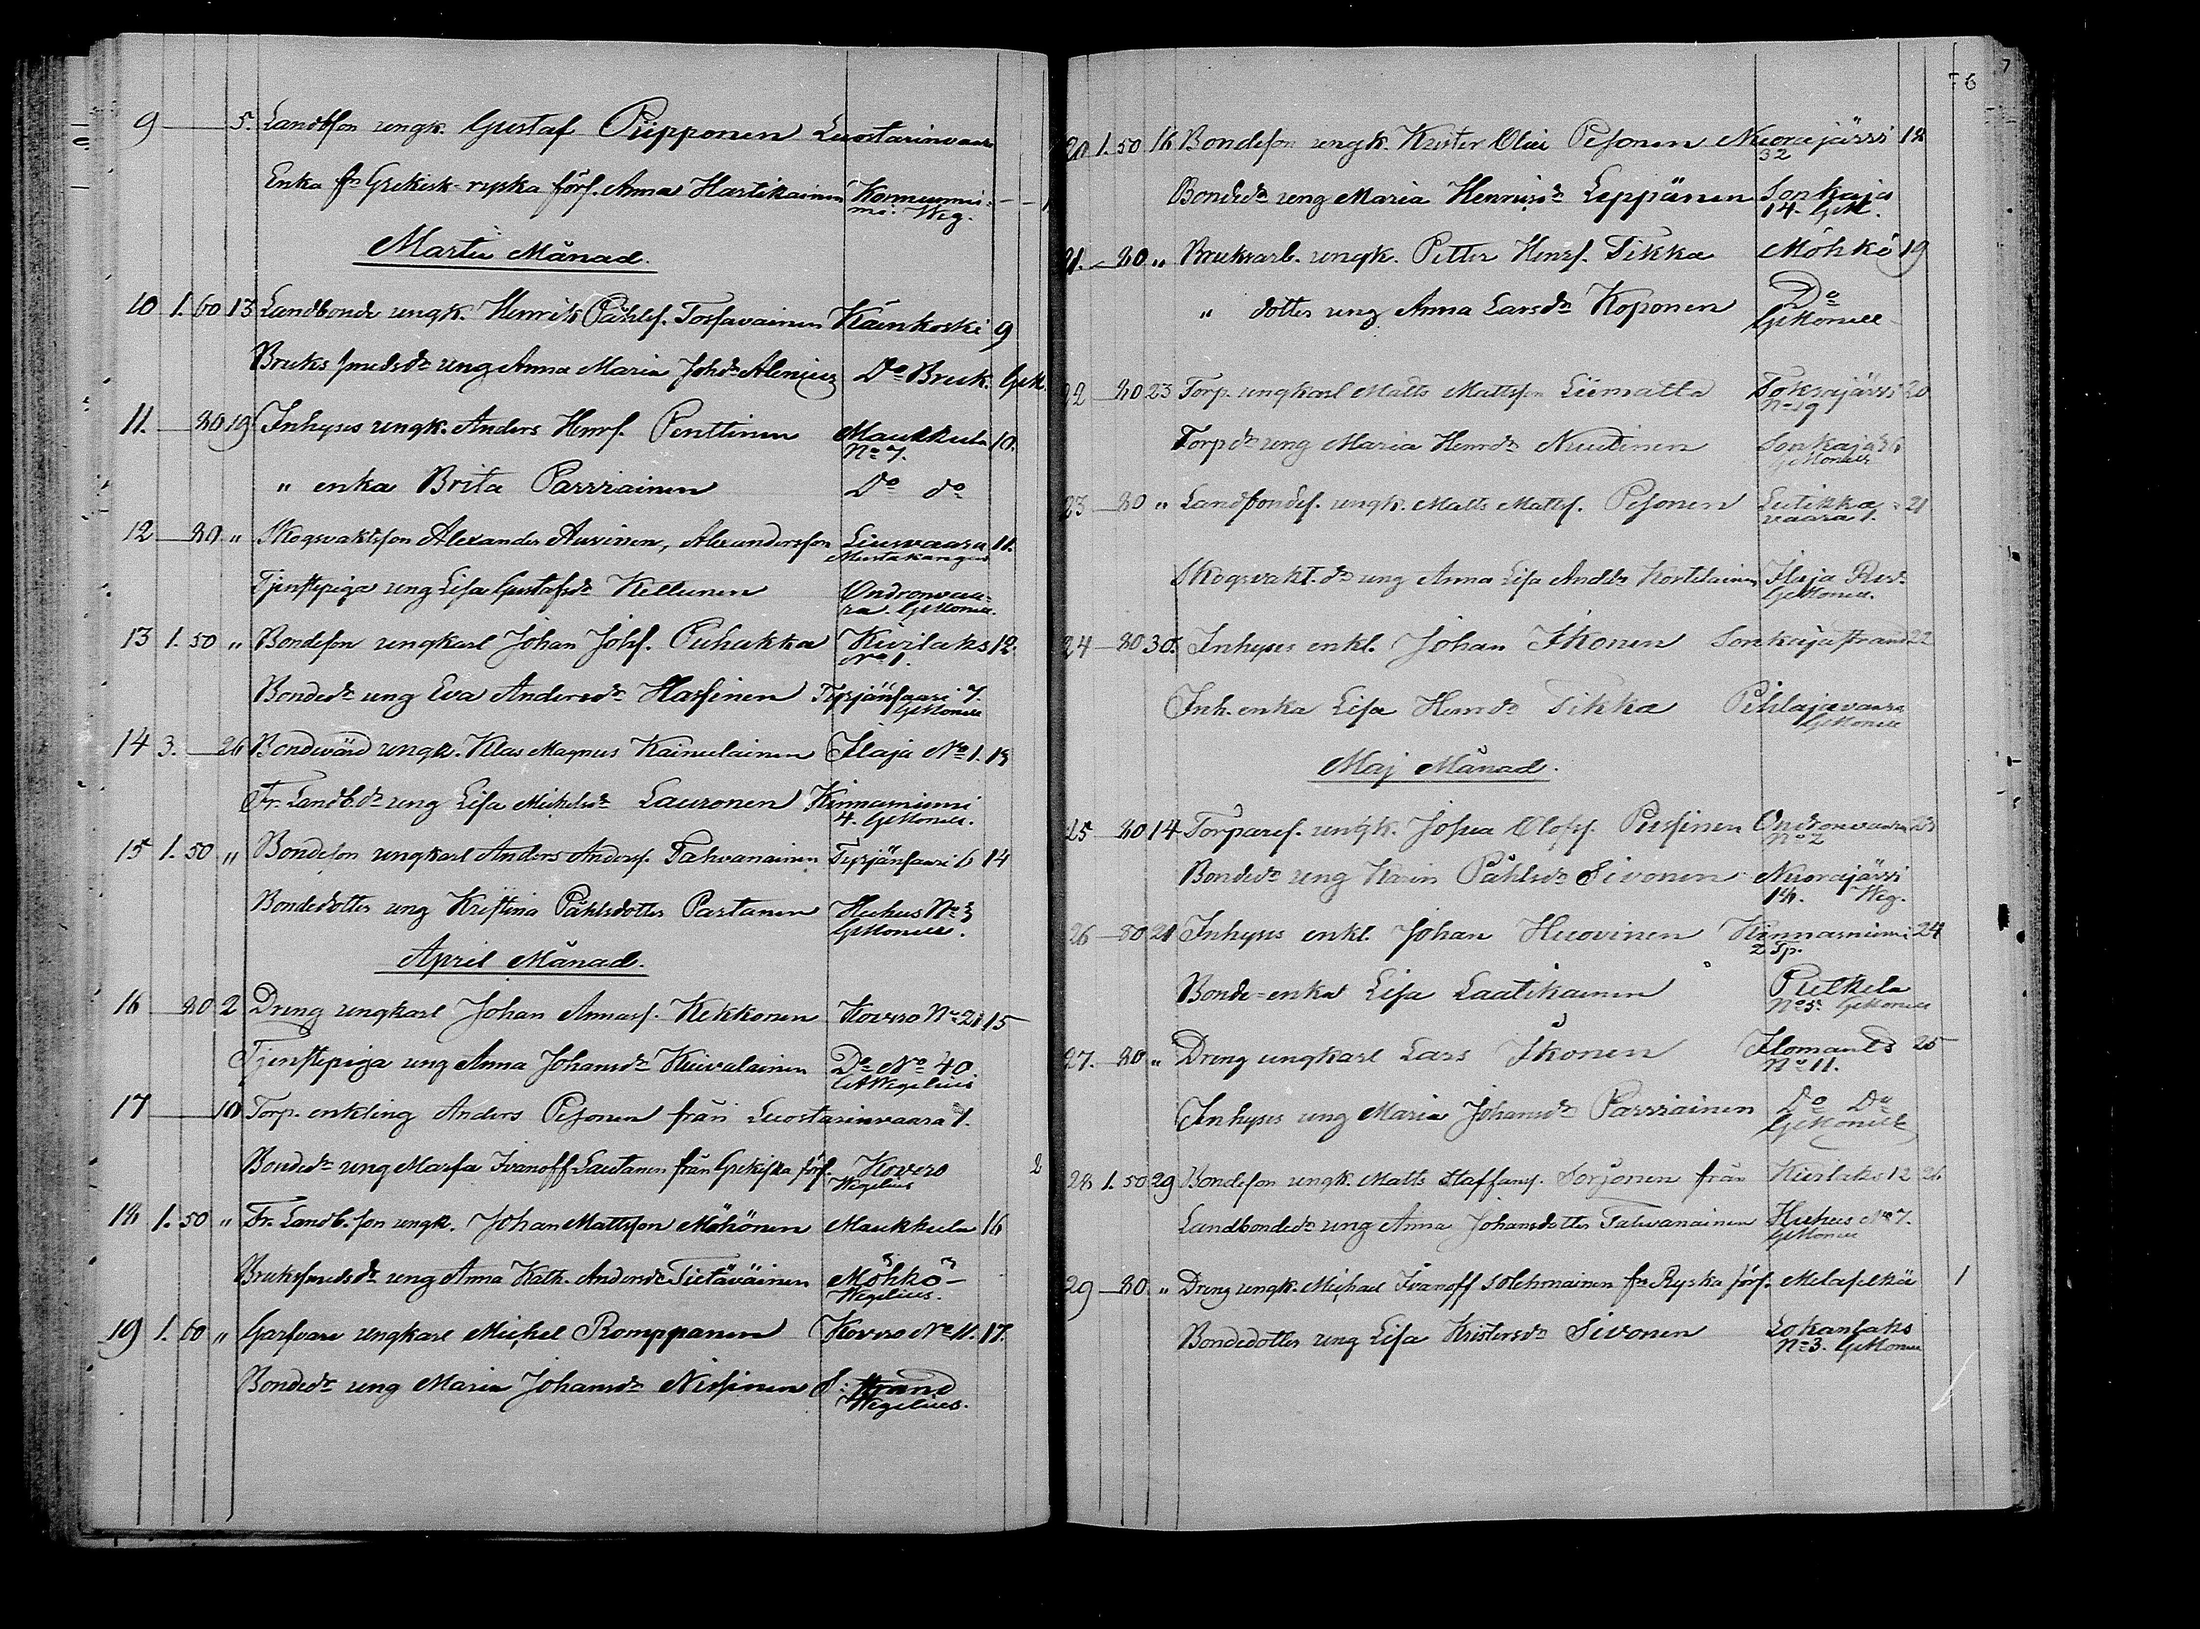 76
9 — 5. Landbson ungk. Gustaf Piipponen Luostarinvaara
Enka fn Grekisk-ryska förs. Anna Hartikainen Kormunni=
mi. Weg.
Martii Månad.
10 1. 60 13 Landbonde ungk. Henrik Påhls. Tossavainen Käenkoski 9
Bruks smedsdr ung Anna Maria Johdr Alenius Do Bruk. GM.
11. — 80 19 Inhyses ungk. Anders Henrs. Penttinen Maukkula 10.
No 7.
" enka Brita Parviainen Do do
12 — 80 " Skogsvaktson Alexander Auvinen, Alexandersson Liusvaara 11.
Mustakangas
Tjenstepiga ung Lisa Gustafsdr Kettunen Ondronvaa=
ra. GMonell.
13 1. 50 " Bondeson ungkarl Johan Johs. Puhakka Kuilaks 12.
No 1.
Bondedr ung Eva Andersdr Hassinen Tyrjänsaari 7.
GMonell
14 3. — 26 Bondevärd ungk. Klas Magnus Kainulainen Ilaja No 1. 13
Fr. Landb. dr ung Lisa Mickelsdr Lauronen Kinnarniemi
4. GMonell.
15 1. 50 " Bondeson ungkarl Anders Anders. Tahvanainen Tyrjänsaari 6 14
Bondedotter ung Kristina Påhlsdotter Partanen Huhus No 3
GMonell.
April Månad.
16 — 80 2 Dreng ungkarl Johan Annas. Kekkonen Kovero No 21 15
Tjenstepiga ung Anna Johansdr Kuivalainen Do No 40.
Wegelius
17 — 10 Torp. enkling Anders Pesonen från Luostarinvaara 1.
Bondedr ung Marfa Ivanoff Lautanen från Grekiska förs. Kovero 2
Wegelius
18 1. 50 " Fr. Landb. son ungk. Johan Mattsson Möhönen Maukkula 16
Brukssmedsdr ung Anna Kath. Andersdr Tietäväinen Möhkö—
Wegelius.
19 1. 60 " Garfvare ungkarl Michel Romppanen Kovero No 11. 17.
Bondedr ung Maria Johansdr Nissinen S: strand
Wegelius.
20 1. 50 16 Bondeson ungk. Krister Olli Pesonen Nuorajärvi 18
32
Bondedr ung Maria Henriksdr Leppänen Sonkaja
14. GM.
21. — 80 " Bruksarb. ungk. Petter Henrs. Tikka Möhkö 19
" dotter ung Anna Larsdr Koponen Do
GMonell
22 — 80 23 Torp. ungkarl Matts Mattsson Liimatta Tokrajärvi 20
No 19
Torpdr ung Maria Henrdr Nuutinen Sonkaja 36
GMonell
23 — 80 " Landbondes. ungk. Matts Matts. Pesonen Leitikka= 21
vaara 1.
Skogsvakt. dr ung Anna Lisa Anddr Kortelainen Ilaja
GMonell.
24 — 80 30. Inhyses enkl. Johan Ikonen Sonkajastrand 22
Inh. enka Lisa Henrdr Tikka Pihlajavaara
GMonell
Maj Månad.
25 — 80 14 Torpares. ungk. Josua Olofs. Pussinen Ondronvaara 23
No 2
Bondedr ung Karin Påhlsdr Sivonen Nuorajärvi
14. Weg.
26 — 80 21 Inhyses enkl. Johan Huovinen Kinnarniemi 24
2 Tp.
Bonde=enka Lisa Laatikainen Putkela
No 5. GMonell
27. — 80 " Dreng ungkarl Lars Ikonen Ilomants 25
No 11.
Inhyses ung Maria Johansdr Parviainen Do Do
GMonell
28 1. 50 29 Bondeson ungk. Matts Staffans. Sorjonen från Kuilaks 12 26
Landbondedr ung Anna Johansdotter Tahvanainen Huhus No 7.
GMonell
29 — 80. " Dreng ungk. Michael Ivanoff Solehmainen fn Ryska förs. Melaselkä 1
Bondedotter ung Lisa Kristersdr Sivonen Lokanlaks
No 3. GMonell